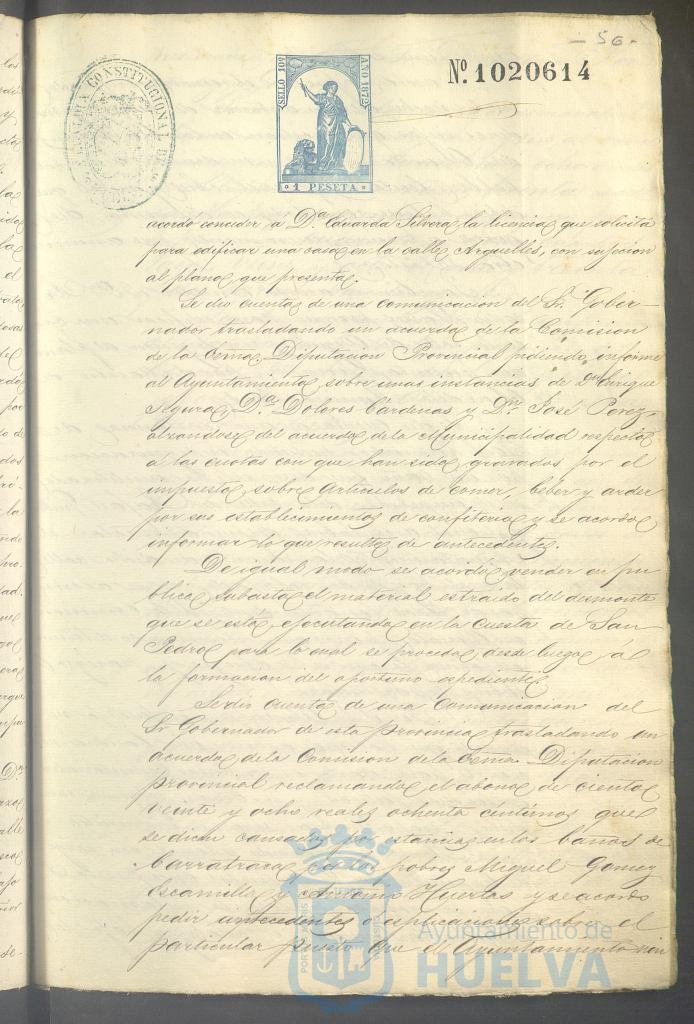 - 56 -
ALCALDIA CONSTITUCIONAL DE
SELLO 10º AÑO 1872
1 PESETA
Nº. 1020614
acordó conceder á D.ª Eduarda Silvera la licencia que solicita
para edificar una casa en la calle Arguelles, con sujecion
al plano que presenta.
Se dió cuenta de una comunicacion del Sr. Gober-
nador trasladando un acuerdo de la Comision
de la Excma. Diputacion Provincial pidiendo informe
al Ayuntamiento sobre unas instancias de Dn. Enrique
Segura, D.ª Dolores Cárdenas y Dn. José Perez
alzandose del acuerdo de la Municipalidad respecto
á las cuotas con que han sido gravados por el
impuesto sobre articulos de comer, beber y arder
por sus establecimientos de confiteria y se acordó
informar lo que resulta de antecedentes.
De igual modo se acordó vender en pu
blica subasta el material estraido del desmonte
que se está ejecutando en la Cuesta de San
Pedro para lo cual se proceda desde luego á
la formacion del oportuno espediente
Se dió cuenta de una Comunicacion del
Sr. Gobernador de esta provincia trasladando un
acuerdo de la Comision de la Excma. Diputacion
provincial reclamando el abono de ciento
veinte y ocho reales ochenta céntimos que
se dicen causados por estancias en los baños de
Carratraca por los pobres Miguel Gomez
Escamilla y Antonio Huertas y se acordó
pedir antecedentes ó esplicaciones sobre el
particular puesto que el Ayuntamiento nin
Ayuntamiento de
HUELVA